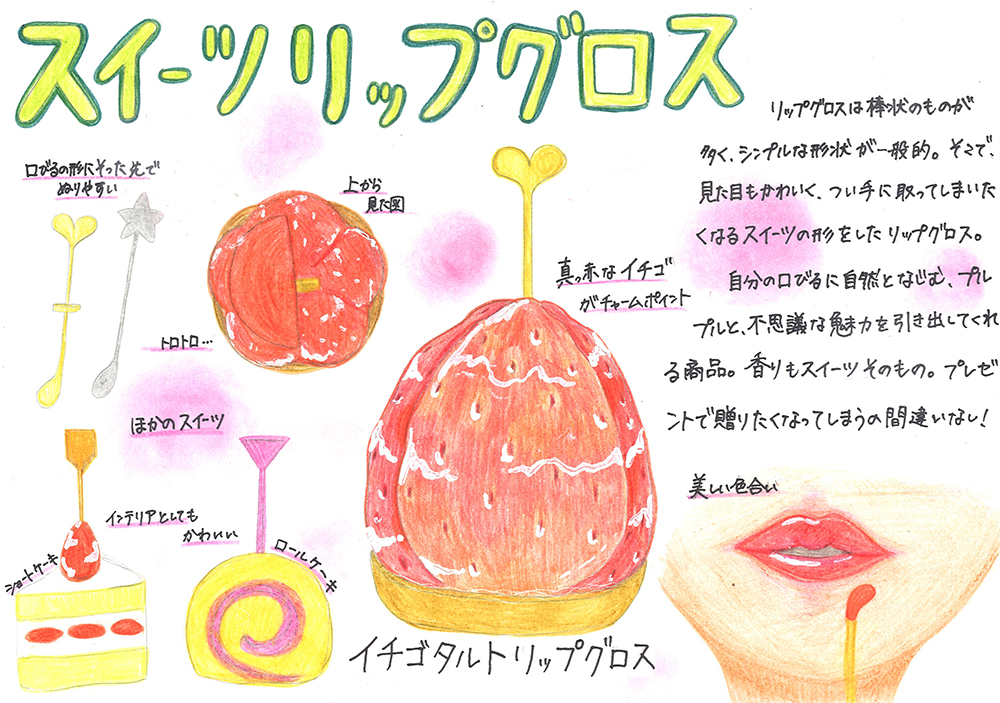 スイーツリップグロス
リップグロスは棒状のものが
多く、シンプルな形状が一般的。そこで、
見た目もかわいく、つい手に取ってしまいた
くなるスイーツの形をしたリップグロス。
自分の口びるに自然となじむ、プル
プルと、不思議な魅力を引き出してくれ
る商品。香りもスイーツそのもの。プレゼ
ントで贈りたくなってしまうの間違いなし！
口びるの形にそった先で
ぬりやすい
上から
見た図
トロトロ…
真っ赤なイチゴ
がチャームポイント
ほかのスイーツ
インテリアとしても
かわいい
ショートケーキ
ロールケーキ
イチゴタルトリップグロス
美しい色合い